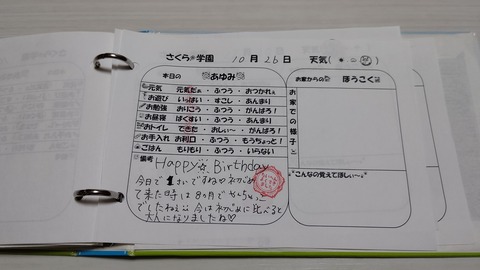 さくら 学園 10月26日 天気(
本日の あゆみ
元気 元気だぁ ・ ふつう ・ おつかれぇ
お遊び いっぱい ・ すこし ・ あんまり
お勉強 おりこう ・ ふつう ・ がんばろ!
お昼寝 ばくすい ・ ふつう ・ あんまり
おトイレ できた ・ おしい～ ・ がんばろ!
お手入れ お利口 ・ ふつう ・ もうちょっと!
ごはん もりもり ・ ふつう ・ いらない
備考 Happy Birthday
今日で1才ですね♡初め
て来た時は8カ月で
でしたねぇ 今は初めに比べると
大人になりましたね♡
お家からの ほうこく
お家での様子
こんなの覚えてほしい～